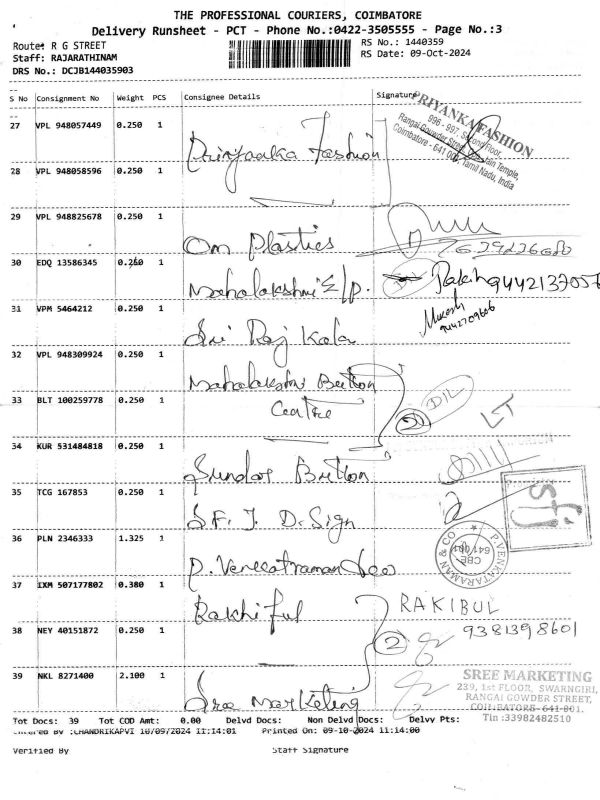 THE PROFESSIONAL COURIERS, COIMBATORE
Delivery Runsheet - PCT - Phone No.:0422-3505555 - Page No.:3
Route: R G STREET
RS No.: 1440359
Staff: RAJARATHINAM
RS Date: 09-Oct-2024
DRS No.: DCJB144035903
S No Consignment No Weight PCS Consignee Details Signature
PRIYANKA FASHION
996 - 997, Second Floor,
Rangai Gowder Street, Jain Temple,
Coimbatore - 641 001, Tamil Nadu, India
27 VPL 948057449 0.250 1 Priyanka Fashion
28 VPL 948058596 0.250 1
29 VPL 948825678 0.250 1 Om Plastics
30 EDQ 13586345 0.250 1 Mahalakshmi E/p. 9442137057
31 VPM 5464212 0.250 1 Sri Raj Kala Mukesh
9442709606
32 VPL 948309924 0.250 1 Mahalakshmi Button
33 BLT 100259778 0.250 1 Centre
34 KUR 531484818 0.250 1 Sundar Button
35 TCG 167853 0.250 1 S F. J. D. Sign
sfj
36 PLN 2346333 1.325 1 P. Venkatraman &co
P. VENKATARAMAN & CO
CBE
641 001
37 IXM 507177802 0.380 1 Rakhiful RAKIBUL
38 NEY 40151872 0.250 1 2 9381398601
39 NKL 8271400 2.100 1 Sree Marketing
SREE MARKETING
239, 1st FLOOR, SWARNGIRI,
RANGAI GOWDER STREET,
COIMBATORE - 641 001.
Tin :33982482510
Tot Docs: 39 Tot COD Amt: 0.00 Delvd Docs: Non Delvd Docs: Delvy Pts:
Entered By :CHANDRIKAPVI 10/09/2024 11:14:01 Printed On: 09-10-2024 11:14:00
Verified By Staff Signature